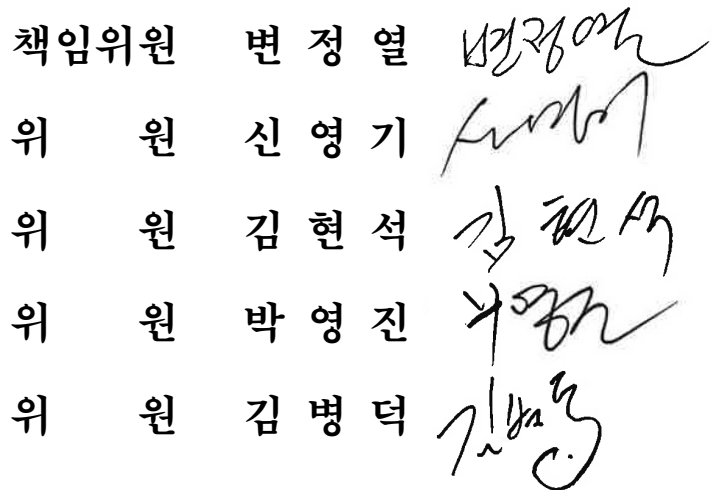 책임위원 변 정 열 변정열
위 원 신 영 기 신영기
위 원 김 현 석 김현석
위 원 박 영 진 박영진
위 원 김 병 덕 김병덕